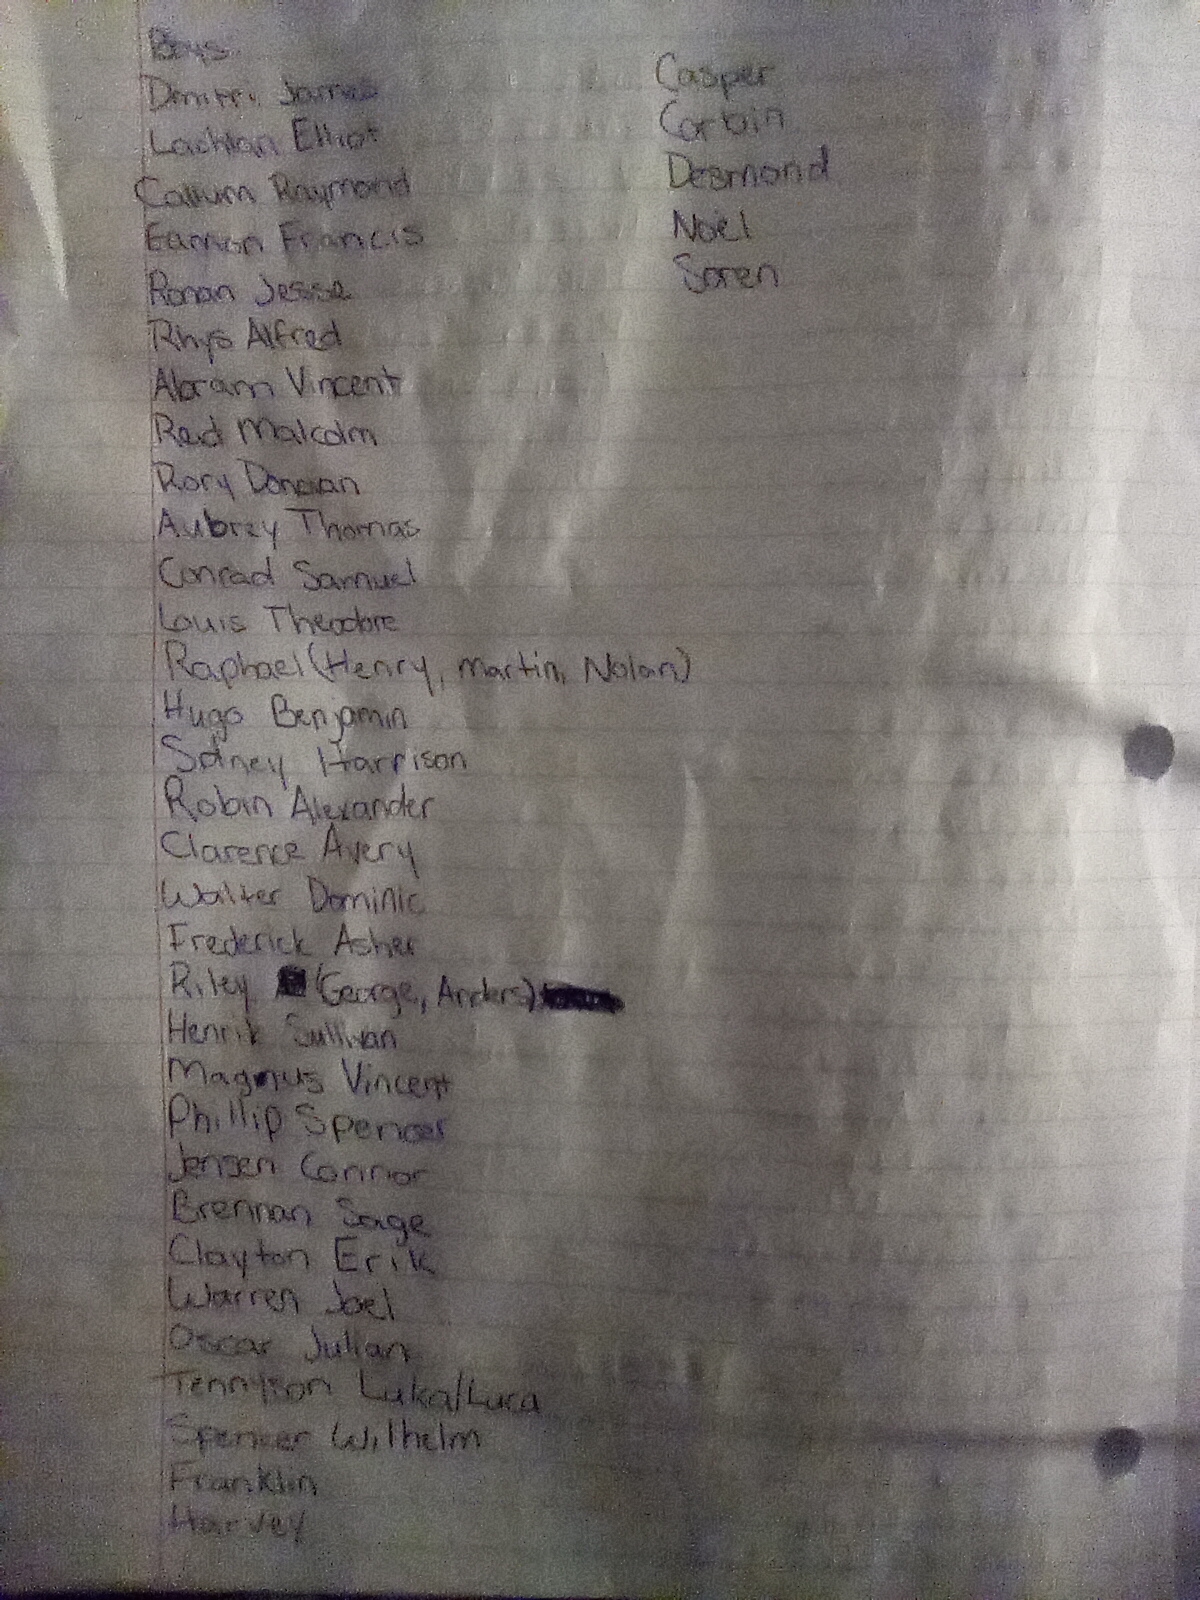 Boys
Dmitri James
Lachlan Elliot
Callum Raymond
Eamon Francis
Ronan Jesse
Rhys Alfred
Abram Vincent
Reid Malcolm
Rory Donovan
Aubrey Thomas
Conrad Samuel
Louis Theodore
Raphael (Henry, Martin, Nolan)
Hugo Benjamin
Sidney Harrison
Robin Alexander
Clarence Avery
Walter Dominic
Frederick Asher
Riley (George, Anders)
Henrik Sullivan
Magnus Vincent
Phillip Spencer
Jensen Connor
Brennan Sage
Clayton Erik
Warren Joel
Oscar Julian
Tennyson Luka/Luca
Spencer Wilhelm
Franklin
Harvey
Casper
Corbin
Desmond
Noel
Soren